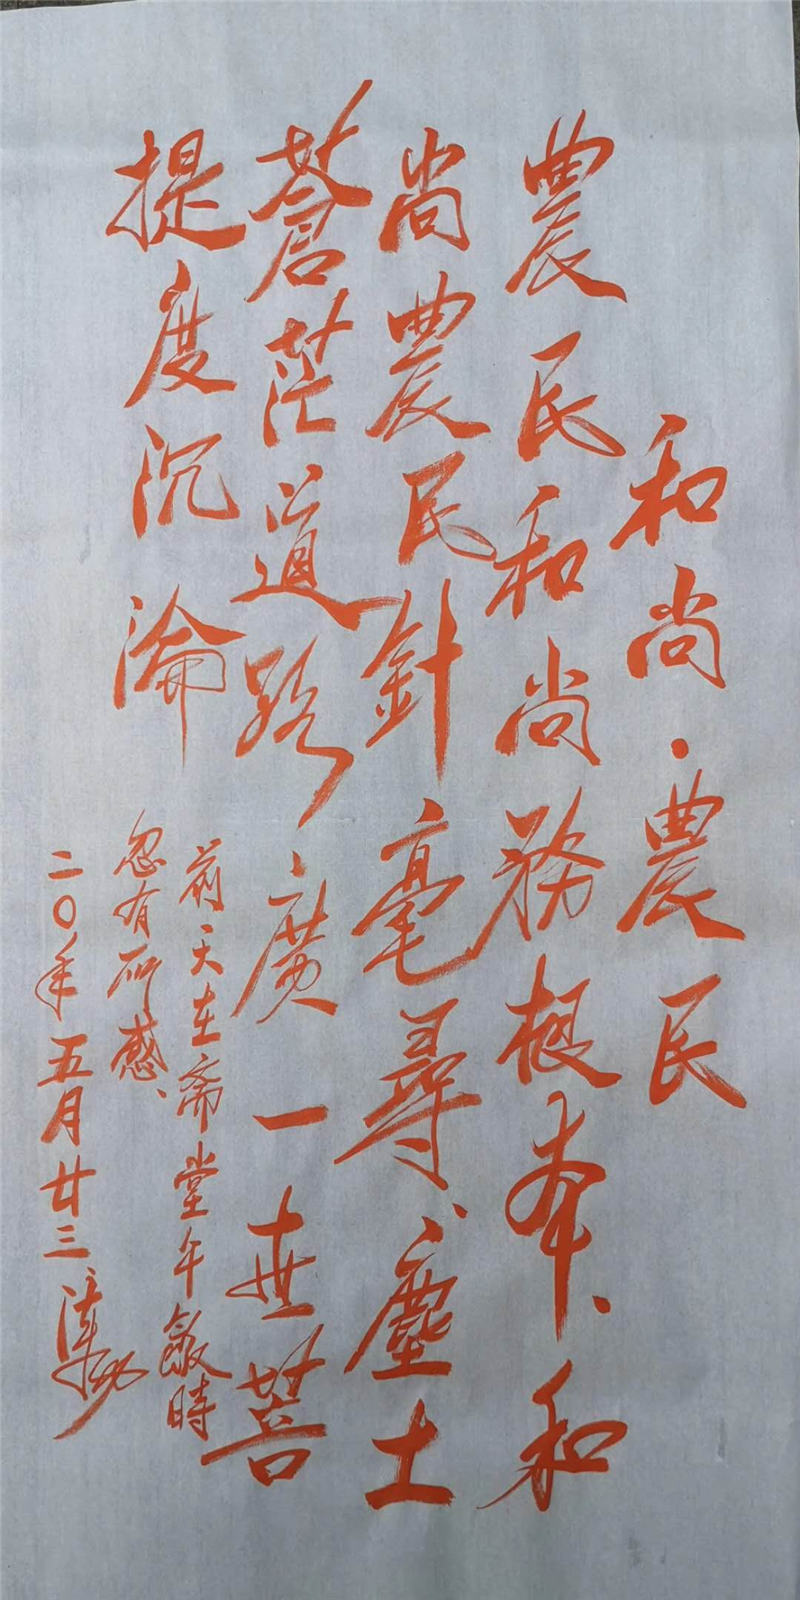 和尚·農民
農民和尚務根本、和
尚農民針毫尋、塵土
蒼茫道路廣一世菩
提度沉淪
前天在斋堂午飯時
忽有所感、
二〇年五月廿三